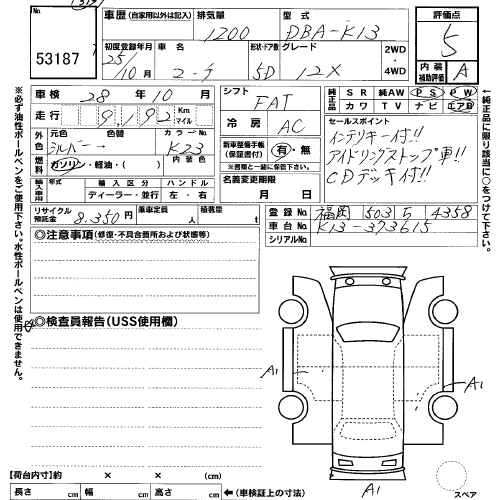 53187
車歴 (自家用以外は記入)
排気量
1200
型式
DBA-K13
評価点
5
内装補助評価
A
初度登録年月
25/10月
車名
マーチ
形状・ドア数
5D
グレード
12X
2WD
・
4WD
車検 28年10月
走行 9,192 Km マイル
外色 元色 シルバー→ 色替
カラーNo. K23
内装色
燃料 ガソリン・軽油・( )
輸入車用 年式 輸入区分 ハンドル
ディーラー・並行 左・右
リサイクル預託金 8,350円
乗車定員 人
積載量 t
シフト
FAT
冷房
AC
新車整備手帳
(保証書付)
有・無
※書類と一緒に保管して下さい。
名義変更期限
月 日
純正品
SR 純AW PS PW
カワ TV ナビ エアB
セールスポイント
インテリキー付!!
アイドリングストップ車!!
CDデッキ付!!
登録No. 福岡 503 ち 4358
車台No. K13-373615
シリアルNo.
※必ず油性ボールペンをご使用下さい。水性ボールペンは使用できません。
←純正品に限り該当に○をつけて下さい。
◎注意事項 (修復・不具合箇所および状態等)
◎検査員報告(USS使用欄)
A1
A1
A1
スペア
【荷台内寸】約 × × (cm)
長さ cm 幅 cm 高さ cm ←(車検証上の寸法)